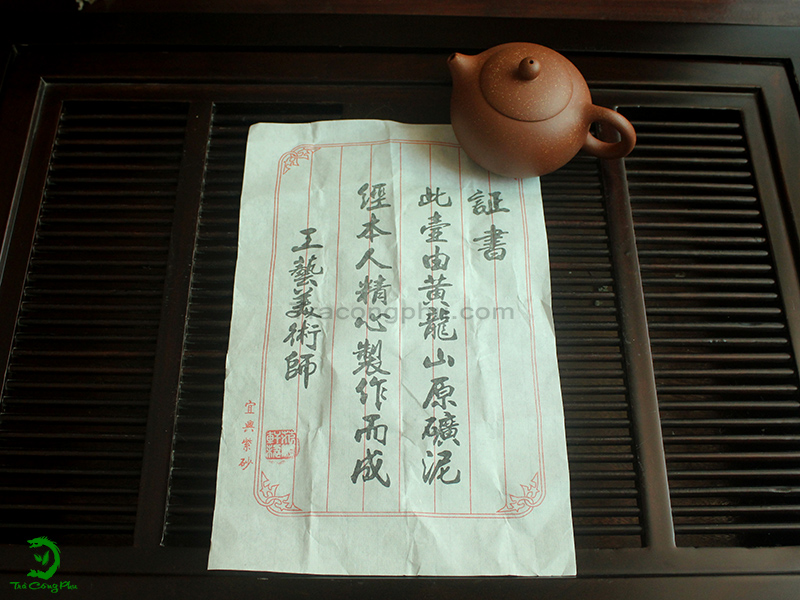 証書
此壺由黄龍山原礦泥
經本人精心製作而成
工藝美術師
宜興紫砂
tracongphu.com
Trà Công Phu